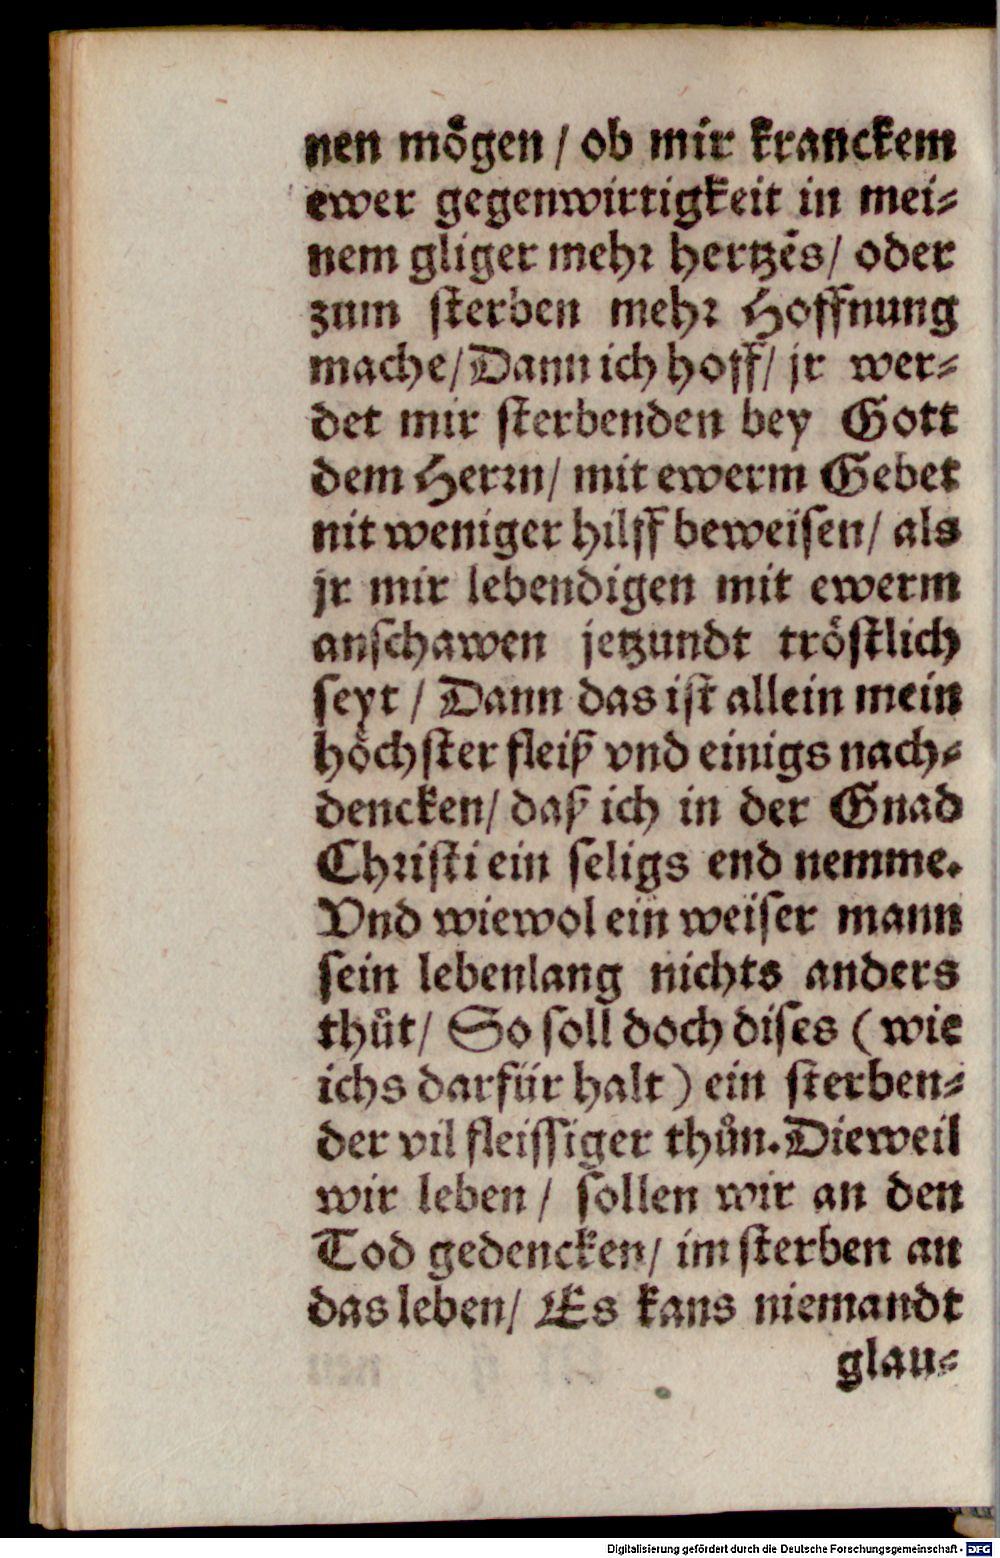 nen mögen / ob mir kranckem
ewer gegenwirtigkeit in mei⸗
nem gliger mehr hertzẽs / oder
zum sterben mehr Hoffnung
mache / Dann ich hoff / jr wer⸗
det mir sterbenden bey Gott
dem Herrn / mit ewerm Gebet
nit weniger hilff beweisen / als
jr mir lebendigen mit ewerm
anschawen jetzundt tröstlich
seyt / Dann das ist allein mein
höchster fleiß vnd einigs nach⸗
dencken / daß ich in der Gnad
Christi ein seligs end nemme.
Vnd wiewol ein weiser mann
sein lebenlang nichts anders
thůt / So soll doch dises ( wie
ichs darfür halt ) ein sterben⸗
der vil fleissiger thůn. Dieweil
wir leben / sollen wir an den
Tod gedencken / im sterben an
das leben / Es kans niemandt
glau⸗
Digitalisierung gefördert durch die Deutsche Forschungsgemeinschaft - DFG